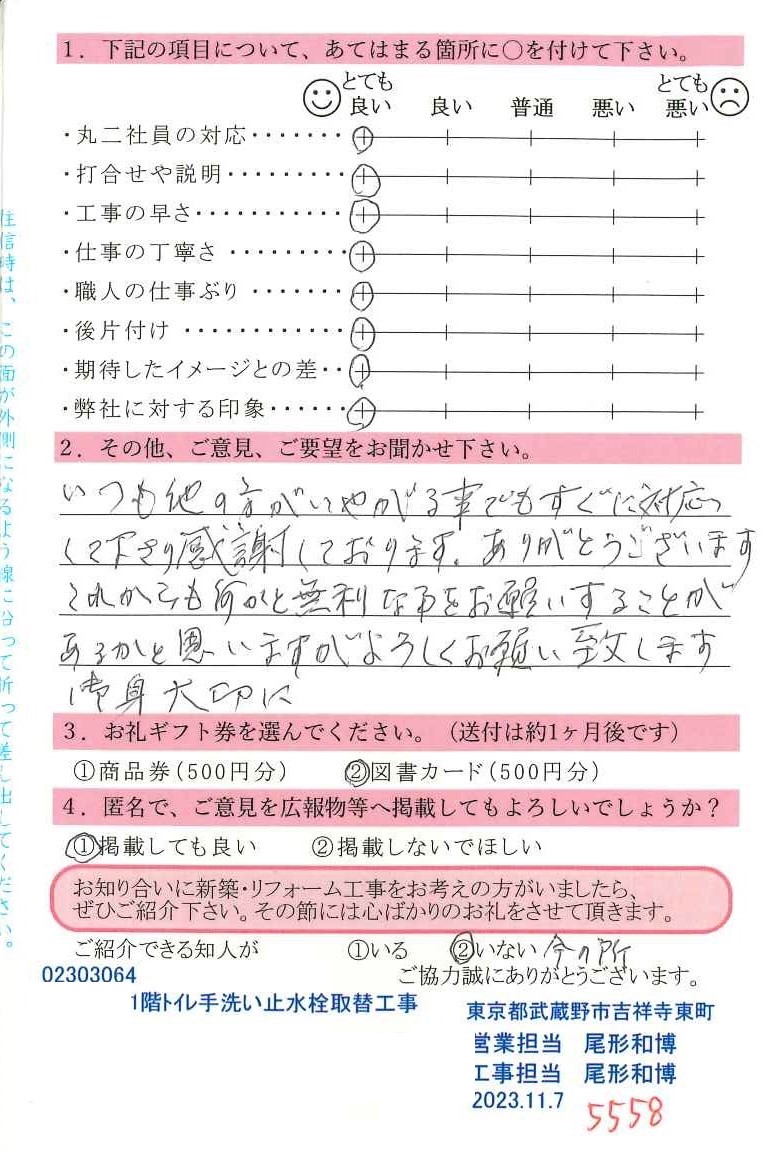 1. 下記の項目について、あてはまる箇所に○を付けて下さい。
とても良い 良い 普通 悪い とても悪い
・丸二社員の対応・・・・・・・
・打合せや説明・・・・・・・・・
・工事の早さ・・・・・・・・・・・
・仕事の丁寧さ ・・・・・・・・・
・職人の仕事ぶり ・・・・・・・・
・後片付け ・・・・・・・・・・・・
・期待したイメージとの差・・
・弊社に対する印象・・・・・・
2. その他、ご意見、ご要望をお聞かせ下さい。
いつも他の方がいやがる事でもすぐに対応
して下さり感謝しております。ありがとうございます
これからも何かと無利な事をお願いすることが
あるかと思いますがよろしくお願い致します
御身大切に
3. お礼ギフト券を選んでください。（送付は約1ヶ月後です）
①商品券(500円分) ②図書カード(500円分)
4. 匿名で、ご意見を広報物等へ掲載してもよろしいでしょうか？
①掲載しても良い ②掲載しないでほしい
お知り合いに新築・リフォーム工事をお考えの方がいましたら、
ぜひご紹介下さい。その節には心ばかりのお礼をさせて頂きます。
ご紹介できる知人が ①いる ②いない 今の所
ご協力誠にありがとうございます。
02303064
1階トイレ手洗い止水栓取替工事
東京都武蔵野市吉祥寺東町
営業担当 尾形和博
工事担当 尾形和博
2023.11.7
5558
信時は、この面が外側になるよう線に沿って折って差し出してください。